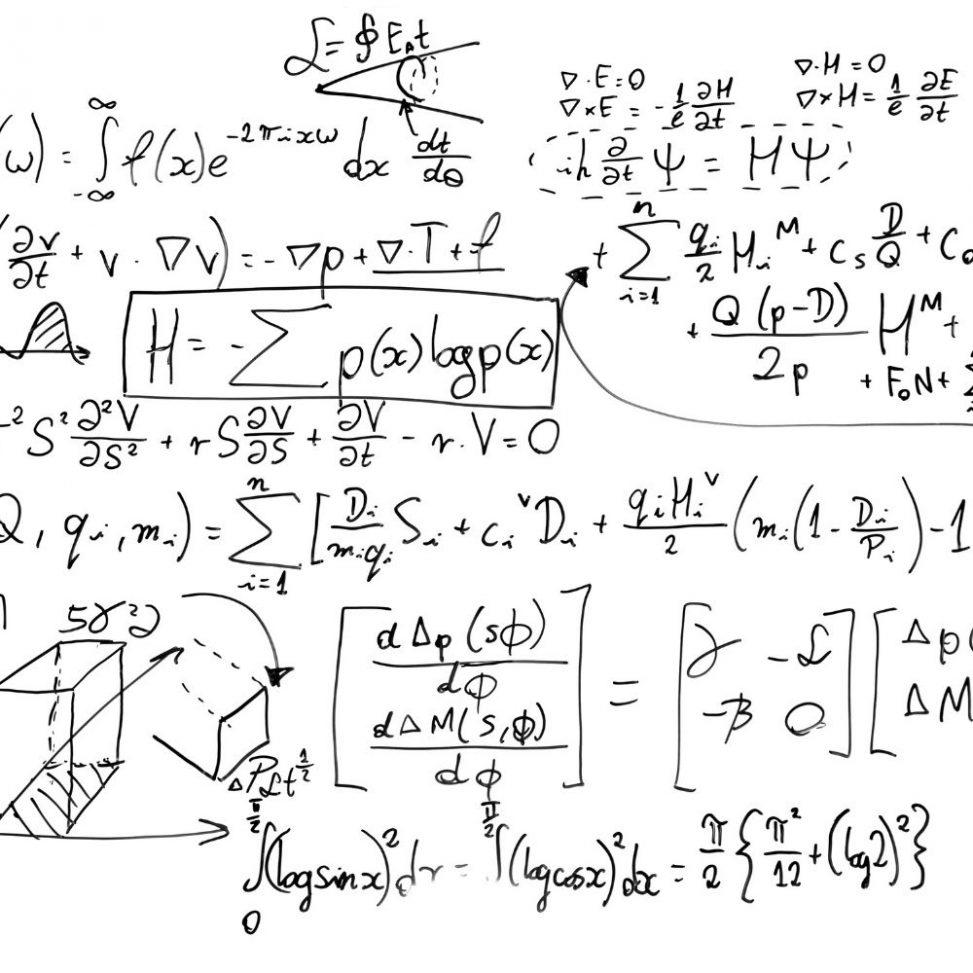 ℒ = ∮ E, t
∇·E = 0
∇·H = 0
∇×E = -1/e ∂H/∂t
∇×H = 1/e ∂E/∂t
ω) = ∫_{-∞}^{∞} f(x)e^{-2πixω} dx dt/dθ
iħ ∂/∂t Ψ = HΨ
(∂v/∂t + v · ∇v) = -∇p + ∇·T + f
+ ∑_{i=1}^{n} q_i/2 H_i^M + c_s D/Q + c
+ Q(p-D)/2p H^M +
+ F_0N + ∑
H = -∑ p(x) log p(x)
²S² ∂²V/∂S² + rS ∂V/∂S + ∂V/∂t - r·V = 0
Q, q_i, m_i) = ∑_{i=1}^{n} [D_i/m_iq_i S_i + c_i^v D_i + q_iH_i^v/2 (m_i(1 - D_i/P_i) - 1
[dΔp(sϕ)/dϕ] = [γ -ℒ] [Δp(
[dΔM(s,ϕ)/dϕ] [-β 0] [ΔM
t^{1/2}
∫_0^{π/2} (log sin x)² dx = ∫^{π/2} (log cos x)² dx = π/2 {π²/12 + (log 2)²}